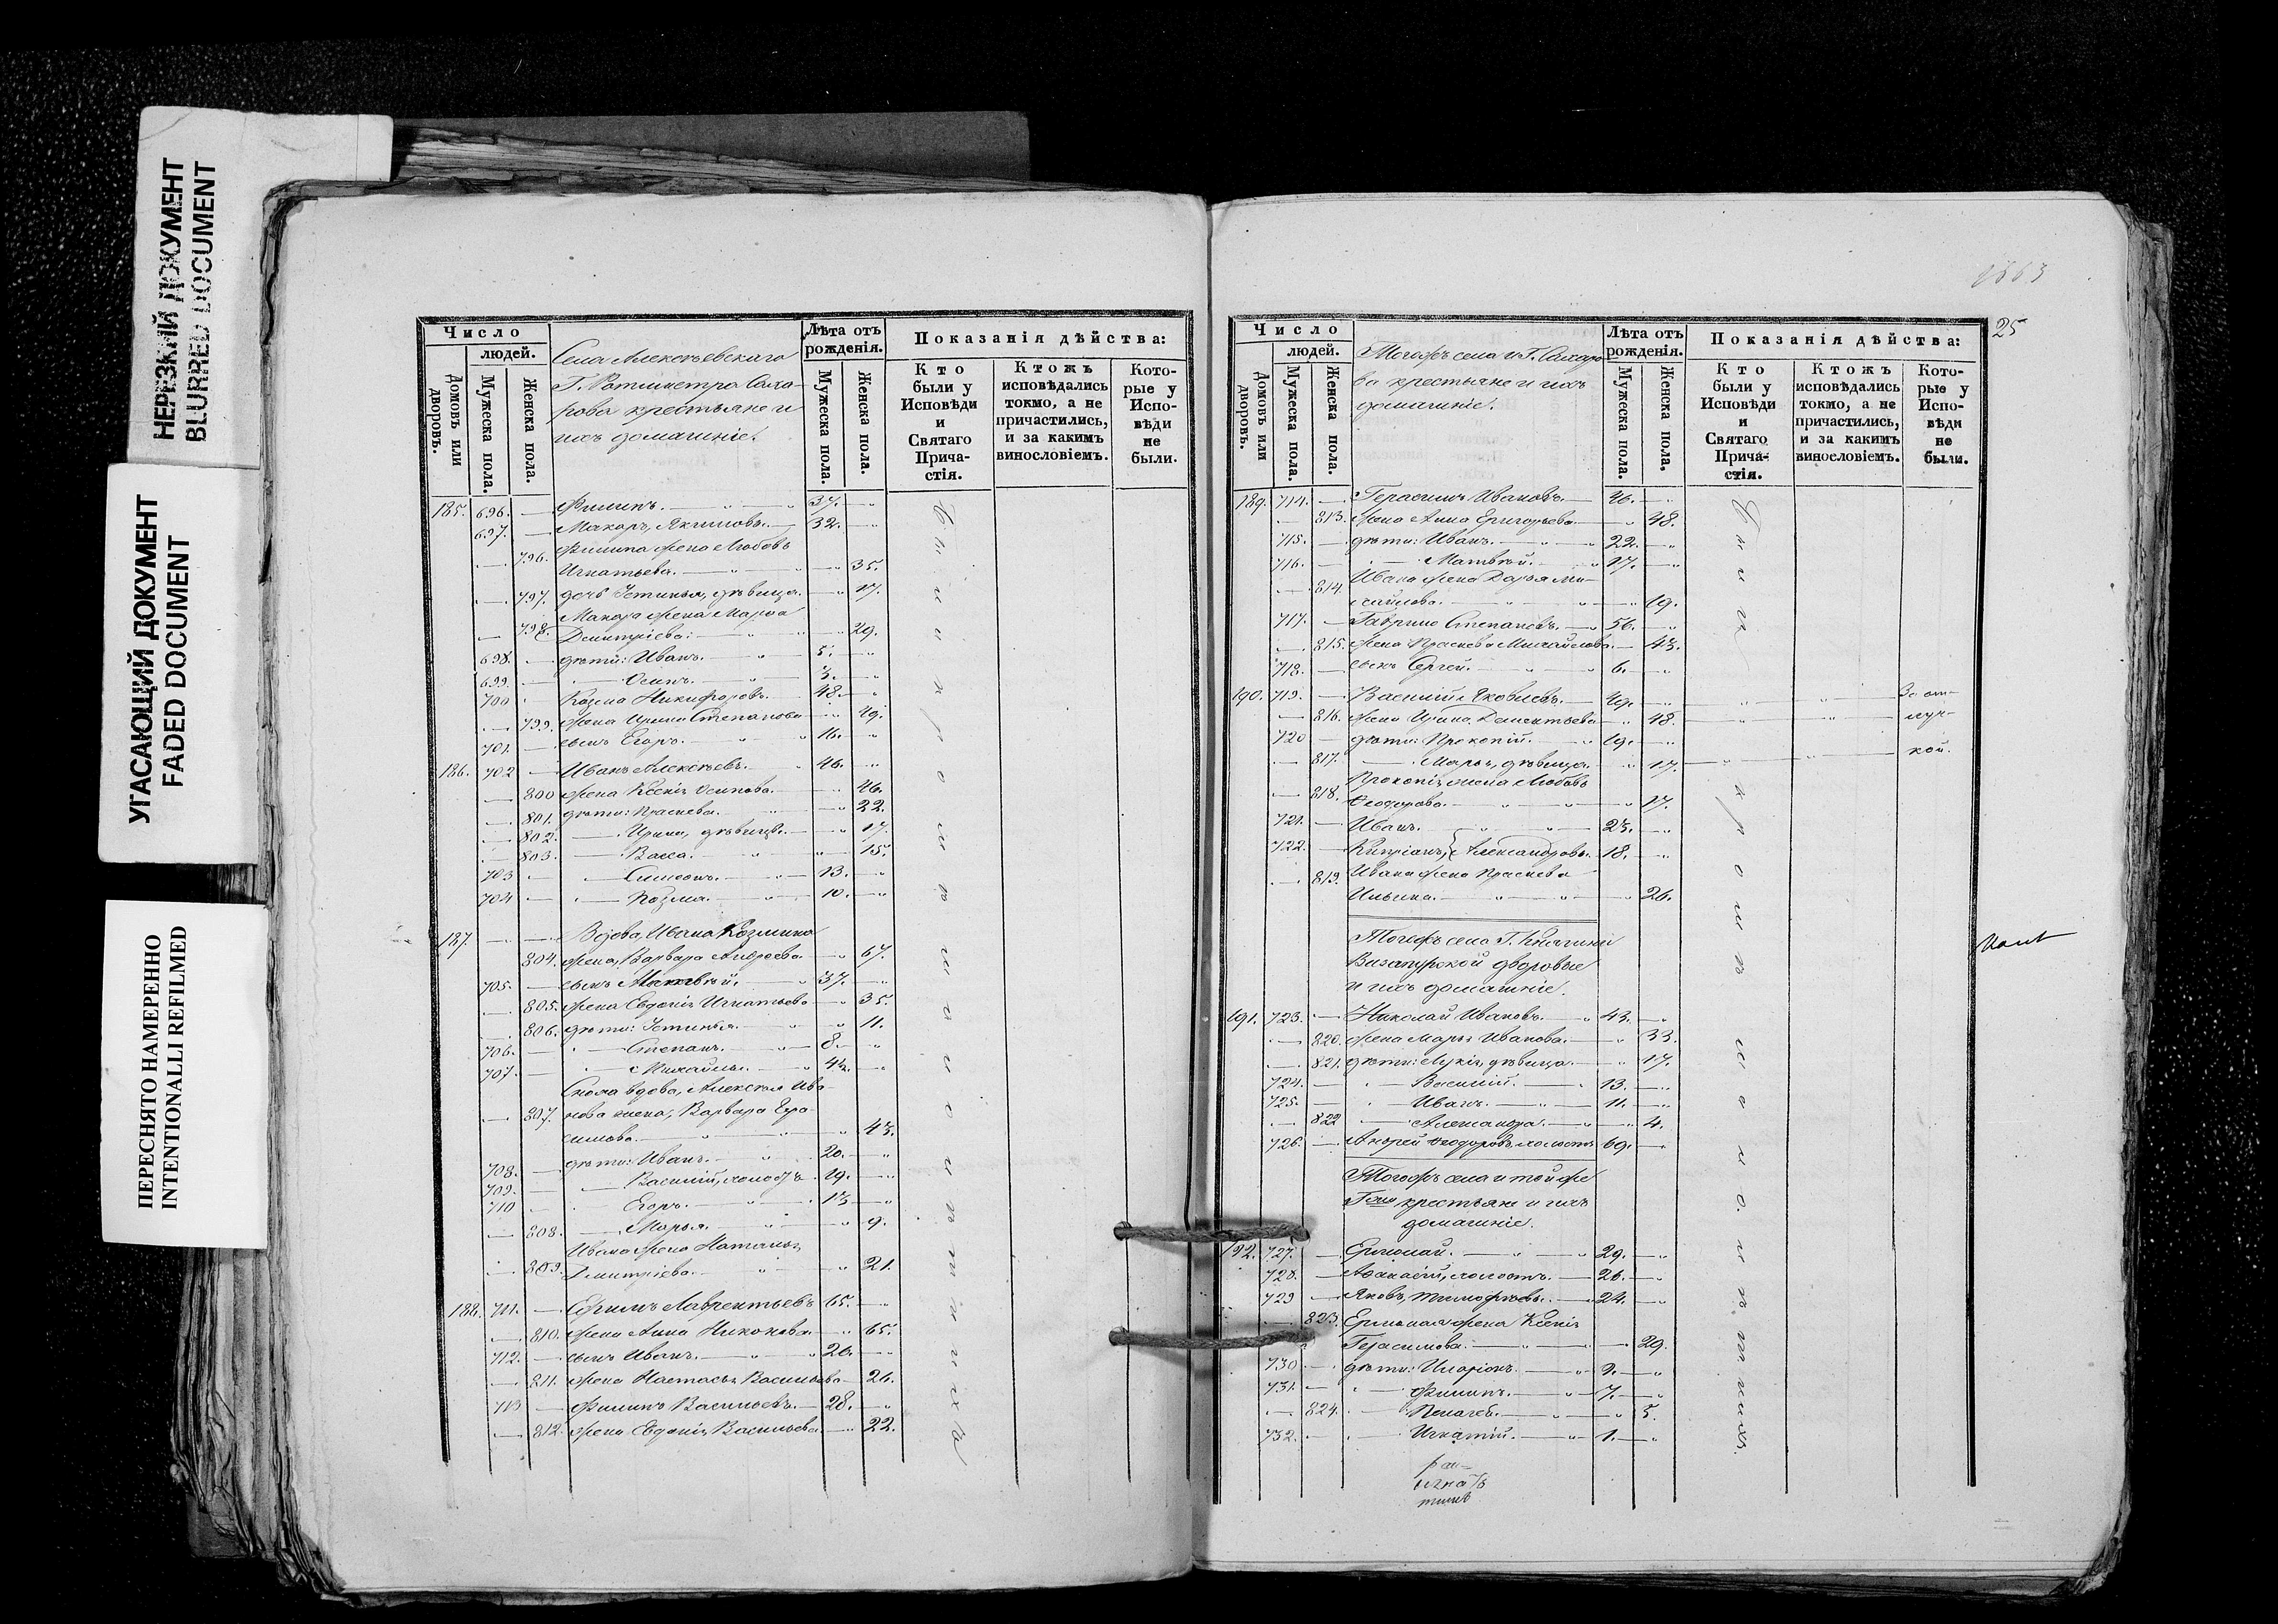 НЕРЕЗКИЙ ДОКУМЕНТ
BLURRED DOCUMENT
УГАСАЮЩИЙ ДОКУМЕНТ
FADED DOCUMENT
ПЕРЕСНЯТО НАМЕРЕННО
INTENTIONALLI REFILMED
Число
людей.
Домовъ или дворовъ.
Мужеска пола.
Женска пола.
Села Алексѣевскаго
Г. Ротмистра Саха-
рова крестьяне и
ихъ домашніе.
Лѣта отъ рожденія.
Мужеска пола.
Женска пола.
Показанія дѣйства:
Кто были у Исповѣди и Святаго Прича-стія.
Ктожъ исповѣдались токмо, а не причастились, и за какимъ винословіемъ.
Кото-рые у Испо-вѣди не были.
185. 696. — Филипъ. — " — " 37. — "
697. — Макаръ, Якимовъ. — 32. — "
— 796. Филипа жена Любовь
Игнатьева. — " — " — " 35.
— 797. дочь Устинья, дѣвица. — " 17.
— 798. Макара жена Марѳа
Дмитріева. — " — " — " 29.
698. — дѣти: Иванъ. — " 5. — "
699. — Осипъ. — " 3. — "
700 — Козма Никифоровъ. — 48. — "
— 799. жена Ирина Степанова — " 49.
701. — сынъ Егоръ. — " — " 16. — "
186. 702 — Иванъ Алексѣевъ. — " 46. — "
— 800 жена Ксенія Осипова. — " 46.
— 801. дѣти: Праскева. — " — " 22.
— 802. — Ирина, дѣвицы. — " 17.
— 803. — Васса. — " — " 15.
703 — Симеонъ. — " 13. — "
704 — Козма. — " 10. — "
187. — Вдова, Ивана Козмина
804. жена, Варвара Андреева — " 67.
705. — сынъ Матвѣй. — " 37. — "
— 805. жена Евдокія Игнатьева — " 35.
— 806. дѣти: Устинья. — " — " 11.
706. — Степанъ. — " 8. — "
707. — Михаилъ. — " 4½. — "
Сноха вдова, Алексѣя Ива-
— 807. нова жена, Варвара Гера-
симова. — " — " — " 43.
708. — дѣти: Иванъ. — " 20. — "
709. — Василій, холостъ. 19. — "
710 — Егоръ. — " — " 13 — "
— 808. — Марья. — " — " 9.
Ивана жена Наталья
— 809. Дмитріева. — " — " 21.
188. 711. — Ефимъ Лаврентьевъ 65. — "
— 810. жена Анна Никонова — " 65.
712. — сынъ Иванъ. — " — " 26. — "
— 811. жена Настасья Васильева — 26.
713 — Филипъ Васильевъ. — 28. — "
— 812. жена Евдокія Васильева — " 22.
25
Число
людей.
Домовъ или дворовъ.
Мужеска пола.
Женска пола.
Тогожъ села и Г. Сахаро-
ва крестьяне и ихъ
домашніе.
Лѣта отъ рожденія.
Мужеска пола.
Женска пола.
Показанія дѣйства:
Кто были у Исповѣди и Святаго Прича-стія.
Ктожъ исповѣдались токмо, а не причастились, и за какимъ винословіемъ.
Кото-рые у Испо-вѣди не были.
189. 714. — Герасимъ Ивановъ. — 46. — "
— 813. жена Анна Григорьева. — " 48.
715. — дѣти: Иванъ. — " 22. — "
716. — Матвѣй. — " 17. — "
— 814. Ивана жена Дарья Ми-
хайлова. — " — " 19.
717. — Гаврило Степановъ. — " 56. — "
— 815. жена Праскева Михайлова. — 43.
718. — сынъ Сергей. — " 6. — "
190. 719. — Василій Яковлевъ. — 49. — " За от-
— 816. жена Ирина Дементьева — " 48. луч-
720 — дѣти: Прокопій. — " 19. — "
— 817. — Марья, дѣвица. — " 17. кой.
Прокопія жена Любовь
— 818. Ѳеодорова. — " — " 17.
721. — Иванъ. — " — " 23. — "
722. — Кипріанъ, Александровы. 18. — "
— 819. Ивана жена Праскева
Ильина. — " — " 26.
Тогожъ села Г. Княгини
Визапурской дворовые
и ихъ домашніе.
191. 723. — Николай Ивановъ. — " 43. — "
— 820. жена Марья Иванова. — " 33.
— 821. дѣти: Лукія, дѣвица. — " 17.
724. — Василій. — " 13. — "
725. — Иванъ. — " 11. — "
— 822 — Александра. — " 4.
726. — Андрей Ѳеодоровъ холостъ 69. — "
Тогожъ села и той же
Гжи крестьяне и ихъ
домашніе.
192. 727. — Ермолай. — " — " 29. — "
728. — Аѳанасій, холостъ. — 26. — "
729 — Яковъ, Тимофѣевы. — 24. — "
— 823. Ермолая жена Ксенія
Герасимова. — " — " 29.
730 — дѣти: Иларіонъ. — " 9. — "
731. — Филипъ. — " 7. — "
— 824. — Пелагея. — " — " 5.
732. — Игнатій. — " 1. — "